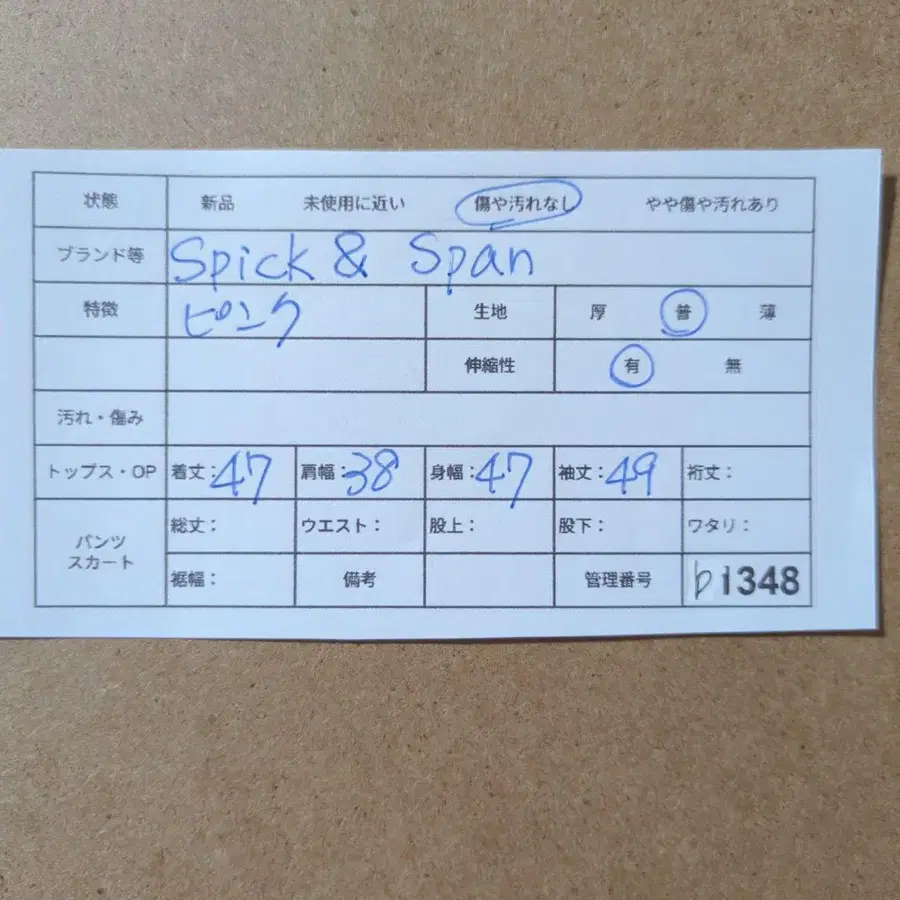 状態 新品 未使用に近い 傷や汚れなし やや傷や汚れあり
ブランド等 Spick & Span
特徴 ピンク 生地 厚 普 薄
伸縮性 有 無
汚れ・傷み
トップス・OP 着丈:47 肩幅:38 身幅:47 袖丈:49 裄丈:
パンツ スカート 総丈: ウエスト: 股上: 股下: ワタリ:
裾幅: 備考 管理番号 b1348